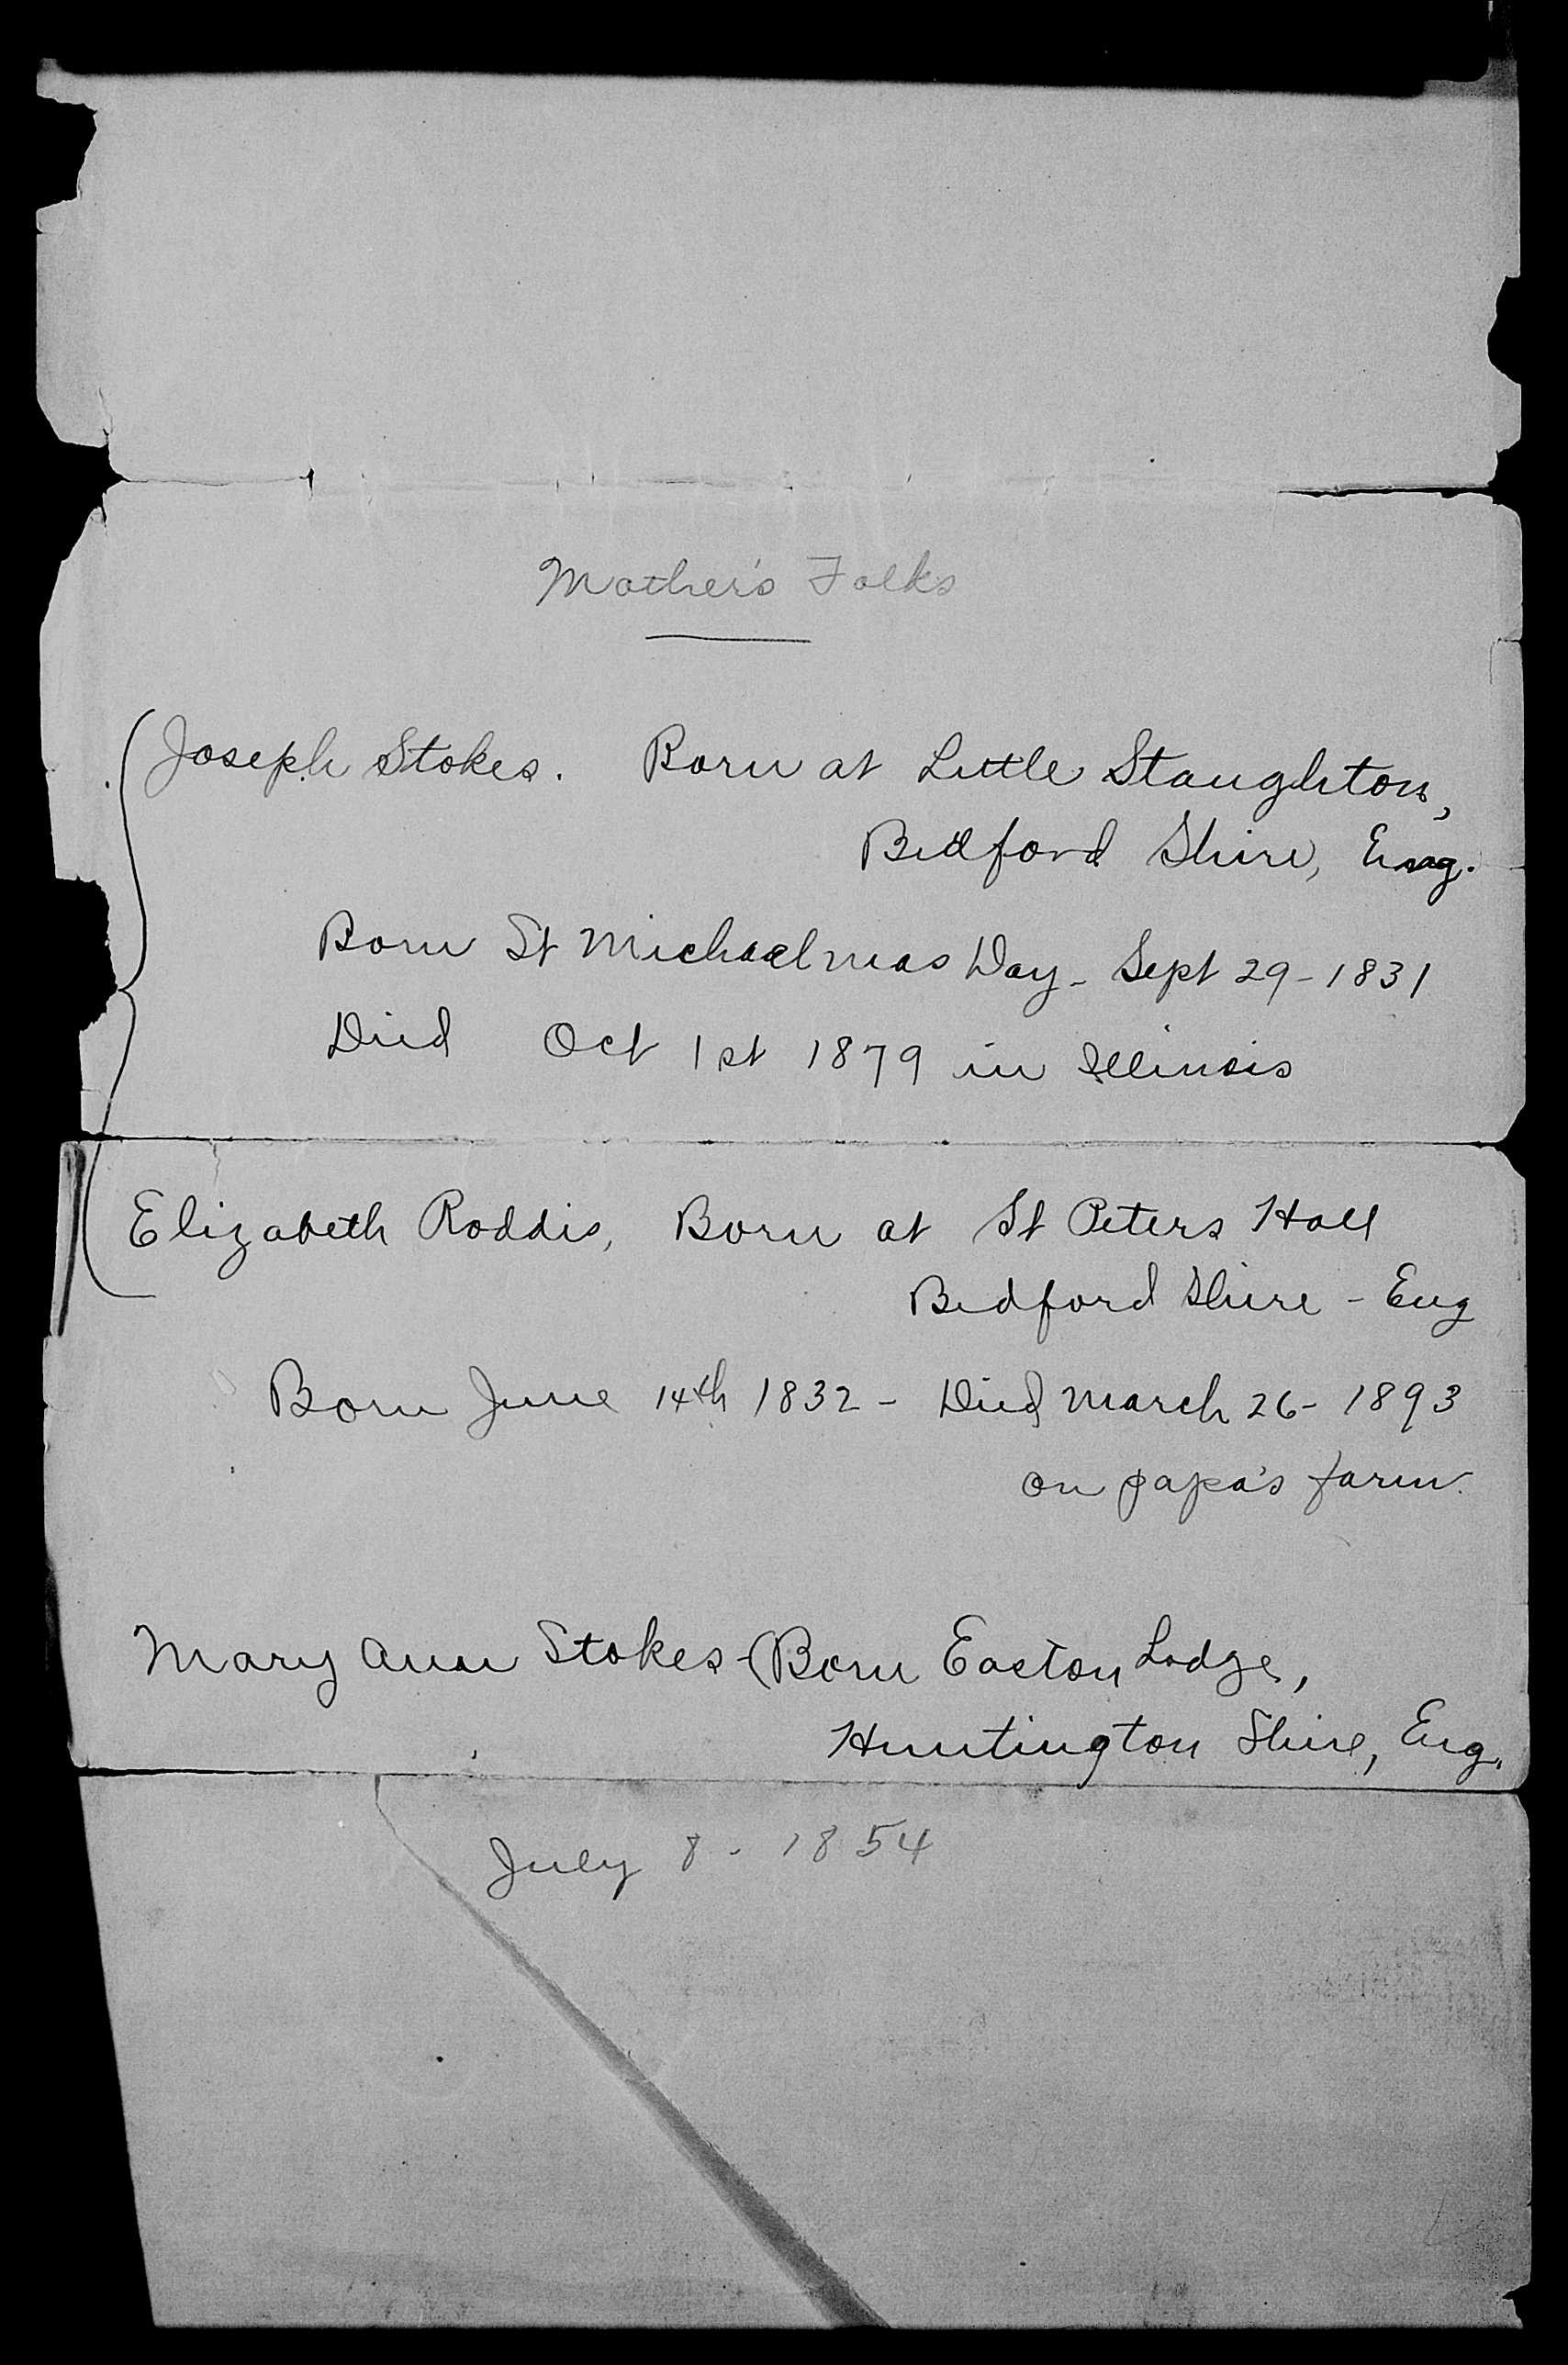 Mother's Folks
Joseph Stokes. Born at Little Staughton,
Bedford Shire, Eng.
Born St Michaelmas Day - Sept 29 - 1831
Died Oct 1st 1879 in Illinois
Elizabeth Roddis, Born at St Peters Hall
Bedford Shire - Eng
Born June 14th 1832 - Died March 26 - 1893
on papa's farm.
Mary Ann Stokes - (Born Easton Lodge,
Huntington Shire, Eng.
July 8 - 1854